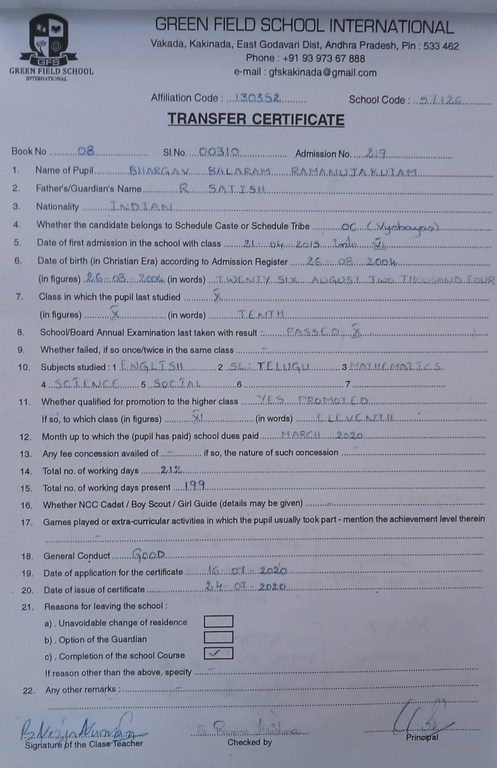 GREEN FIELD SCHOOL INTERNATIONAL
Vakada, Kakinada, East Godavari Dist, Andhra Pradesh, Pin : 533 462
Phone : +91 93 973 67 888
e-mail : gfskakinada@gmail.com
GFS
GREEN FIELD SCHOOL
INTERNATIONAL
Affiliation Code : 130352 School Code : 57126
TRANSFER CERTIFICATE
Book No 08 Sl.No. 00310 Admission No. 219
1. Name of Pupil BHARGAV BALARAM RAMANUJAKUTAM
2. Father's/Guardian's Name R SATISH
3. Nationality INDIAN
4. Whether the candidate belongs to Schedule Caste or Schedule Tribe OC (Vysbaya)
5. Date of first admission in the school with class 21-04-2015 into VI
6. Date of birth (in Christian Era) according to Admission Register 26-08-2004
(in figures) 26-08-2004 (in words) TWENTY SIX AUGUST TWO THOUSAND FOUR
7. Class in which the pupil last studied X
(in figures) X (in words) TENTH
8. School/Board Annual Examination last taken with result : PASSED X
9. Whether failed, if so once/twice in the same class -
10. Subjects studied : 1 ENGLISH 2 SL: TELUGU 3 MATHEMATICS
4 SCIENCE 5 SOCIAL 6 7
11. Whether qualified for promotion to the higher class YES PROMOTED
If so, to which class (in figures) XI (in words) ELEVENTH
12. Month up to which the (pupil has paid) school dues paid MARCH 2020
13. Any fee concession availed of - if so, the nature of such concession -
14. Total no. of working days 212
15. Total no. of working days present 199
16. Whether NCC Cadet / Boy Scout / Girl Guide (details may be given) -
17. Games played or extra-curricular activities in which the pupil usually took part - mention the achievement level therein
18. General Conduct GOOD
19. Date of application for the certificate 16-07-2020
20. Date of issue of certificate 24-07-2020
21. Reasons for leaving the school :
a) . Unavoidable change of residence
b) . Option of the Guardian
c) . Completion of the school Course ✓
If reason other than the above, specify -
22. Any other remarks : -
Signature of the Class Teacher Checked by Principal